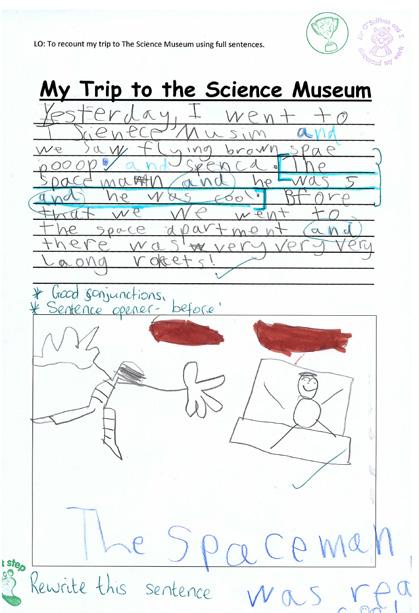 LO: To recount my trip to The Science Museum using full sentences.
My Trip to the Science Museum
Yesterday, I went to
Musim and
we saw flying brown spae
pooop and spenca. The
space man and he was 5
and he was cool. Bfore
that we we went to
the space apartment and
there was very very very
Laong rokets!
* Good conjunctions.
* Sentence opener - before'
The Spaceman
step
Rewrite this sentence was rea